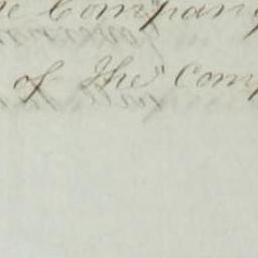 Company
of the Comp